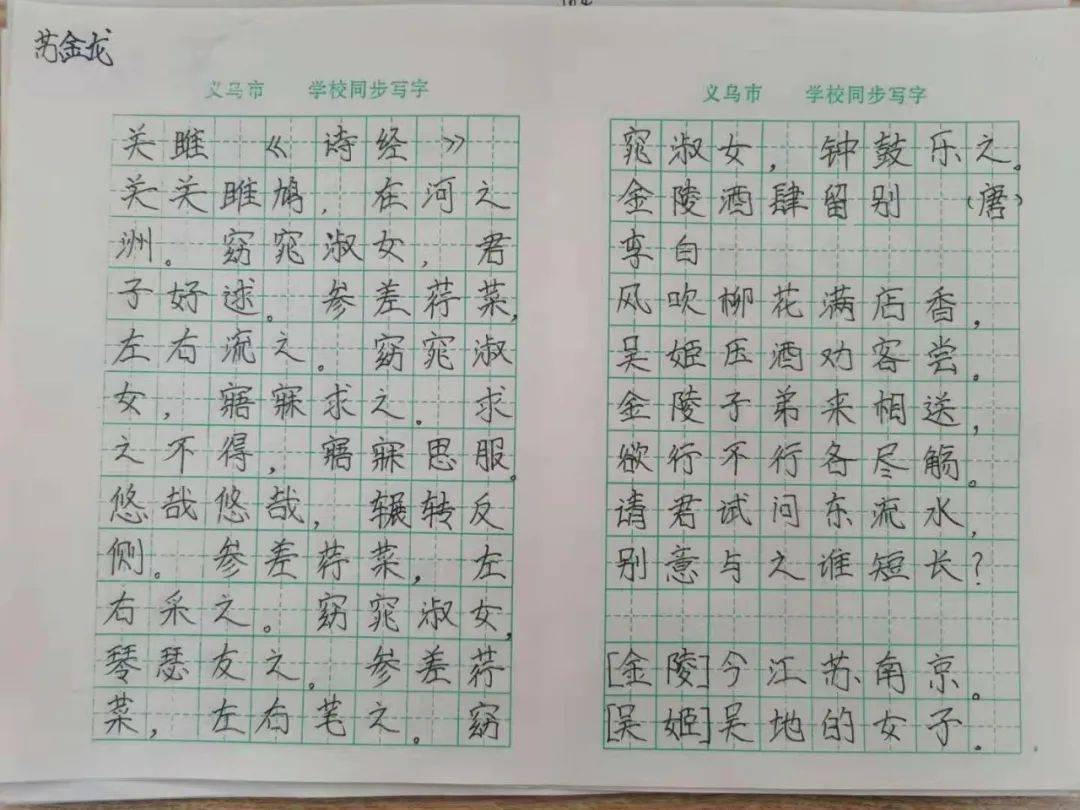 苏金龙
义乌市 学校同步写字
关雎 《诗经》
关关雎鸠，在河之
洲。窈窕淑女，君
子好逑。参差荇菜，
左右流之。窈窕淑
女，寤寐求之。求
之不得，寤寐思服。
悠哉悠哉，辗转反
侧。参差荇菜，左
右采之。窈窕淑女，
琴瑟友之。参差荇
菜，左右芼之。窈
义乌市 学校同步写字
窕淑女，钟鼓乐之。
金陵酒肆留别 （唐）
李白
风吹柳花满店香，
吴姬压酒劝客尝。
金陵子弟来相送，
欲行不行各尽觞。
请君试问东流水，
别意与之谁短长？
[金陵]今江苏南京。
[吴姬]吴地的女子。